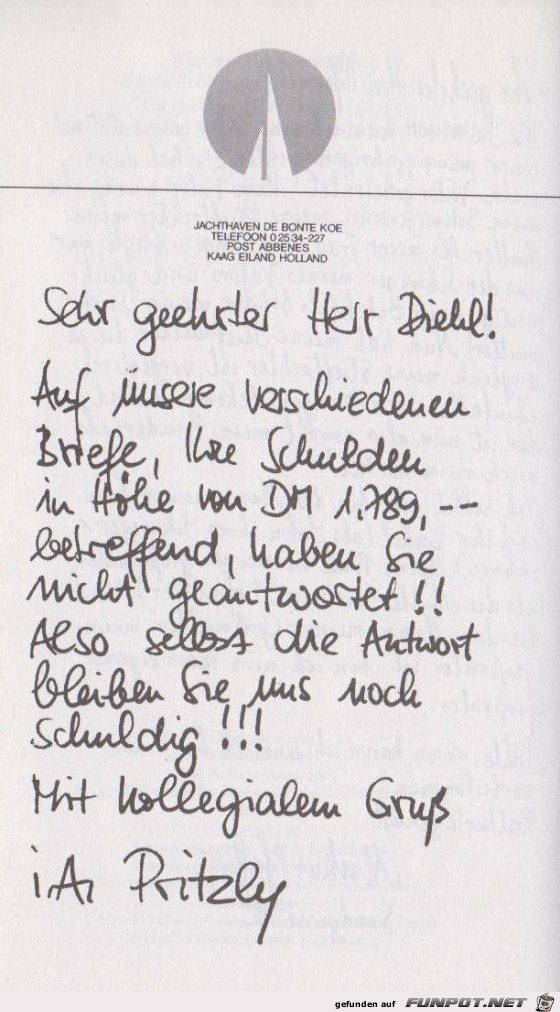 JACHTHAVEN DE BONTE KOE
TELEFOON 0 25 34-227
POST ABBENES
KAAG EILAND HOLLAND
Sehr geehrter Herr Diehl!
Auf unsere verschiedenen
Briefe, Ihre Schulden
in Höhe von DM 1.789,--
betreffend, haben Sie
nicht geantwortet!!
Also selbst die Antwort
bleiben Sie uns noch
schuldig!!!
Mit kollegialem Gruß
i.A. Pritzly
gefunden auf FUNPOT.NET